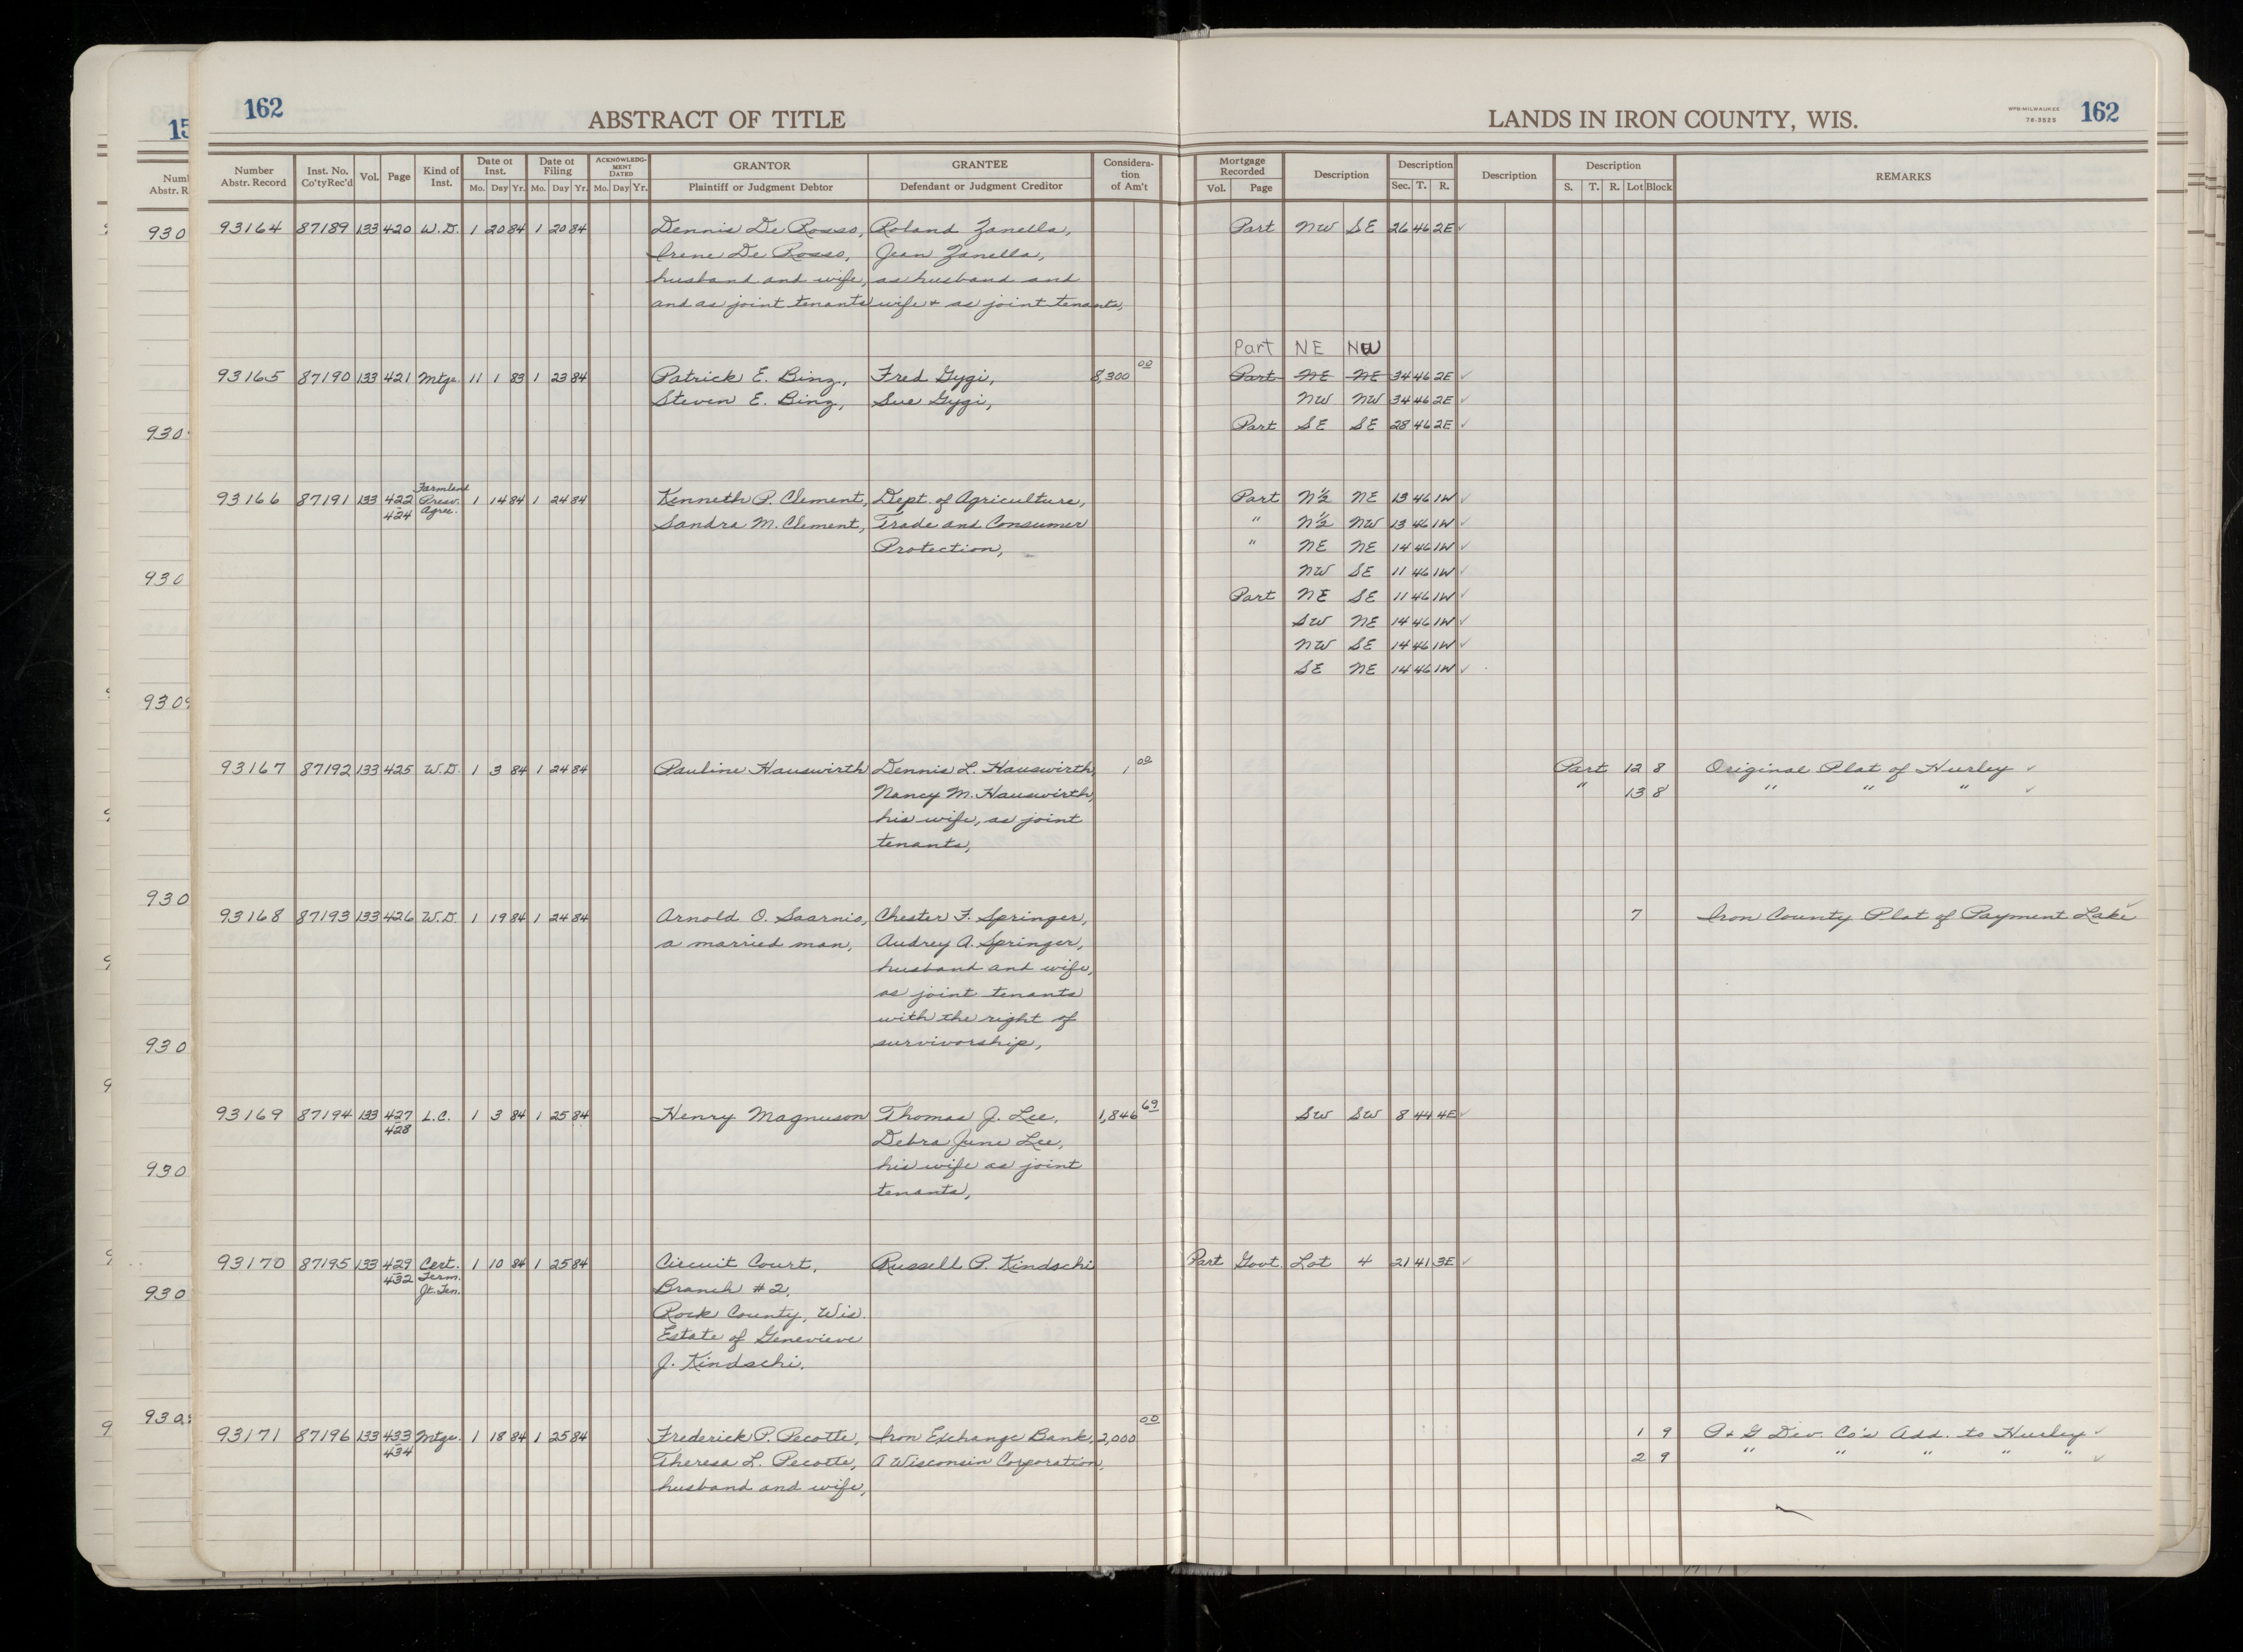 162
ABSTRACT OF TITLE
LANDS IN IRON COUNTY, WIS.
WPB-MILWAUKEE
78-3525
162
15
Number Abstr. Record
Inst. No. Co'ty Rec'd
Vol.
Page
Kind of Inst.
Date of Inst. Mo. Day Yr.
Date of Filing Mo. Day Yr.
ACKNOWLEDGMENT DATED Mo. Day Yr.
GRANTOR Plaintiff or Judgment Debtor
GRANTEE Defendant or Judgment Creditor
Consideration of Am't
Mortgage Recorded Vol. Page
Description
Description Sec. T. R.
Description
Description S. T. R. Lot Block
REMARKS
93164 87189 133 420 W.D. 1 20 84 1 20 84 Dennis De Rosso, Roland Zanella, Part NW SE 26 46 2E ✓
Irene De Rosso, Jean Zanella,
husband and wife, as husband and
and as joint tenants wife & as joint tenants,
Part NE NW
93165 87190 133 421 Mtge. 11 1 83 1 23 84 Patrick E. Binz, Fred Gygi, 8,300 00 Part NE NE 34 46 2E ✓
Steven E. Binz, Sue Gygi, NW NW 34 46 2E ✓
Part SE SE 28 46 2E ✓
93166 87191 133 422-424 Farmland Presv. Agree. 1 14 84 1 24 84 Kenneth P. Clement, Dept. of Agriculture, Part N½ NE 13 46 1W ✓
Sandra M. Clement, Trade and Consumer " N½ NW 13 46 1W ✓
Protection, " NE NE 14 46 1W ✓
NW SE 11 46 1W ✓
Part NE SE 11 46 1W ✓
SW NE 14 46 1W ✓
NW SE 14 46 1W ✓
SE NE 14 46 1W ✓
93167 87192 133 425 W.D. 1 3 84 1 24 84 Pauline Hauswirth Dennis L. Hauswirth, 1 00 Part 12 8 Original Plat of Hurley ✓
Nancy M. Hauswirth, " 13 8 " " " ✓
his wife, as joint
tenants,
93168 87193 133 426 W.D. 1 19 84 1 24 84 Arnold O. Saarnio, Chester F. Springer, 7 Iron County Plat of Payment Lake ✓
a married man, Audrey A. Springer,
husband and wife,
as joint tenants
with the right of
survivorship,
93169 87194 133 427-428 L.C. 1 3 84 1 25 84 Henry Magnuson Thomas J. Lee, 1,846 69 SW SW 8 44 4E ✓
Debra June Lee,
his wife as joint
tenants,
93170 87195 133 429-432 Cert. Term. Jt. Ten. 1 10 84 1 25 84 Circuit Court, Russell P. Kindschi Part Govt. Lot 4 21 41 3E ✓
Branch #2,
Rock County, Wis.
Estate of Genevieve
J. Kindschi.
93171 87196 133 433-434 Mtge. 1 18 84 1 25 84 Frederick P. Pecotte, Iron Exchange Bank, 2,000 00 1 9 Dev. Co's Add. to Hurley ✓
Theresa L. Pecotte, A Wisconsin Corporation, 2 9 " " " " " ✓
husband and wife,